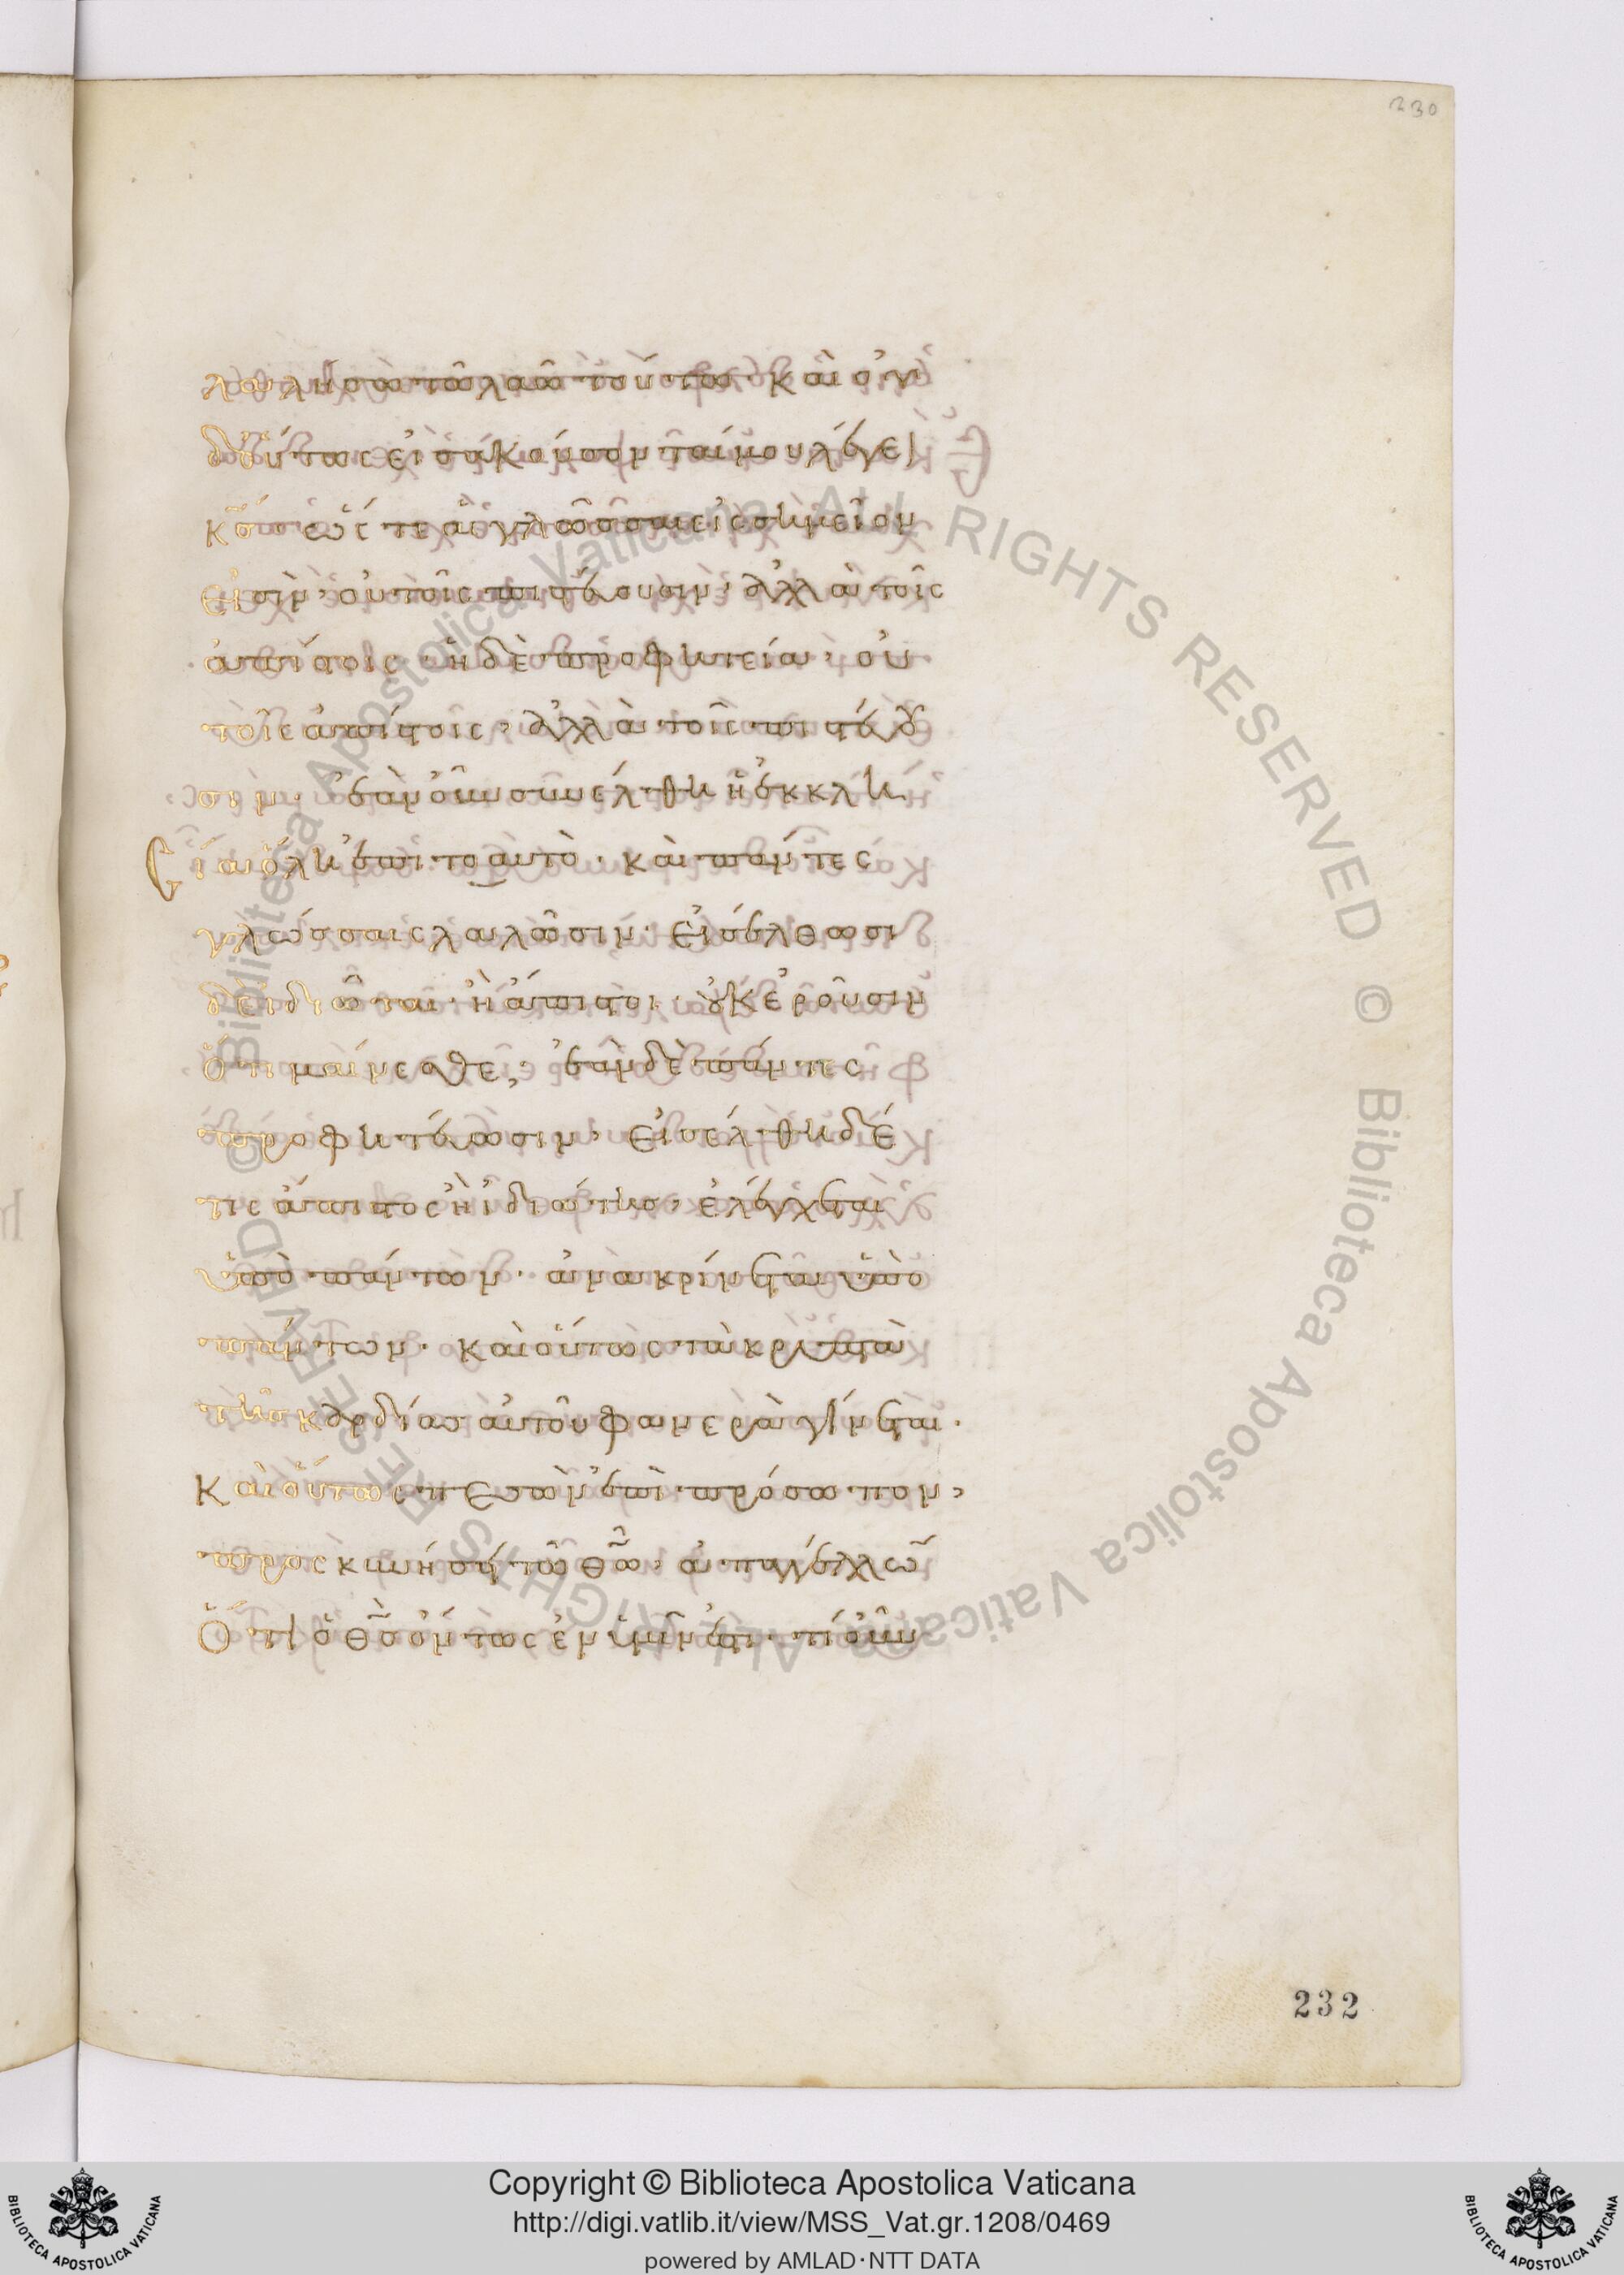 230
λαλήσω τῷ λαῷ τούτῳ· καὶ οὐ
δ' οὕτως εἰσακούσονταί μου λέγει
κς· ὥστε αἱ γλῶσσαι εἰς σημεῖον
εἰσὶν· οὐ τοῖς πιστεύουσιν· ἀλλὰ τοῖς
ἀπίστοις· ἡ δὲ προφητεία· οὐ
τοῖς ἀπίστοις, ἀλλὰ τοῖς πιστεύου
σιν· ἐὰν οὖν συνέλθη ἡ ἐκκλη
σία ὅλη ἐπι το αὐτὸ· καὶ πάντες
γλώσσαις λαλῶσιν· εἰσέλθωσι
δε ἰδιῶται· ἢ ἄπιστοι· οὐκ ἐροῦσιν
ὅτι μαίνεσθε; ἐὰν δὲ πάντες
προφητεύωσιν, εἰσέλθη δέ
τις ἄπιστος ἢ ἰδιώτης, ἐλέγχεται
ὑπὸ πάντων· ἀνακρίνεται ὑπὸ
πάντων· καὶ οὕτως τὰ κρυπτὰ
τῆς καρδίας αὐτοῦ φανερὰ γίνεται·
καὶ οὕτως πεσὼν ἐπὶ πρόσωπον,
προσκυνήσει τῷ θῶ, ἀπαγγέλλων
ὅτι ὁ θς ὄντως ἐν ὑμῖν ἐστι· τί οὖν
232
Biblioteca Apostolica Vaticana ALL RIGHTS RESERVED © Biblioteca Apostolica Vaticana ALL RIGHTS RESERVED ©
Copyright © Biblioteca Apostolica Vaticana
http://digi.vatlib.it/view/MSS_Vat.gr.1208/0469
powered by AMLAD·NTT DATA
BIBLIOTECA APOSTOLICA VATICANA
BIBLIOTECA APOSTOLICA VATICANA